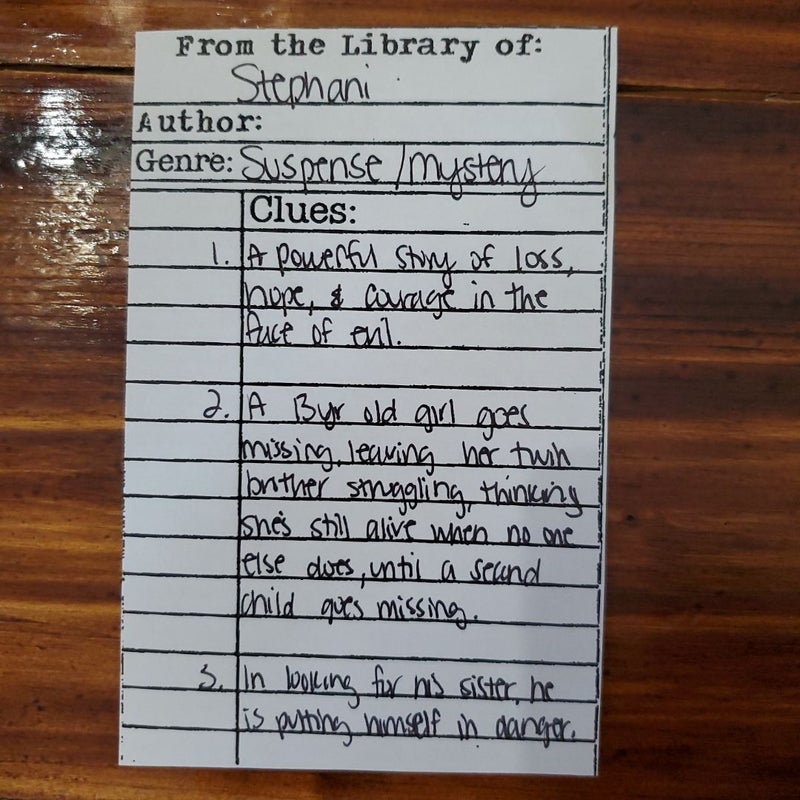 From the Library of:
Stephani
Author:
Genre: Suspense/Mystery
Clues:
1. A powerful story of loss,
hope, & courage in the
face of evil.
2. A 13yr old girl goes
missing, leaving her twin
brother struggling, thinking
she's still alive when no one
else does, until a second
child goes missing.
3. In looking for his sister, he
is putting himself in danger.